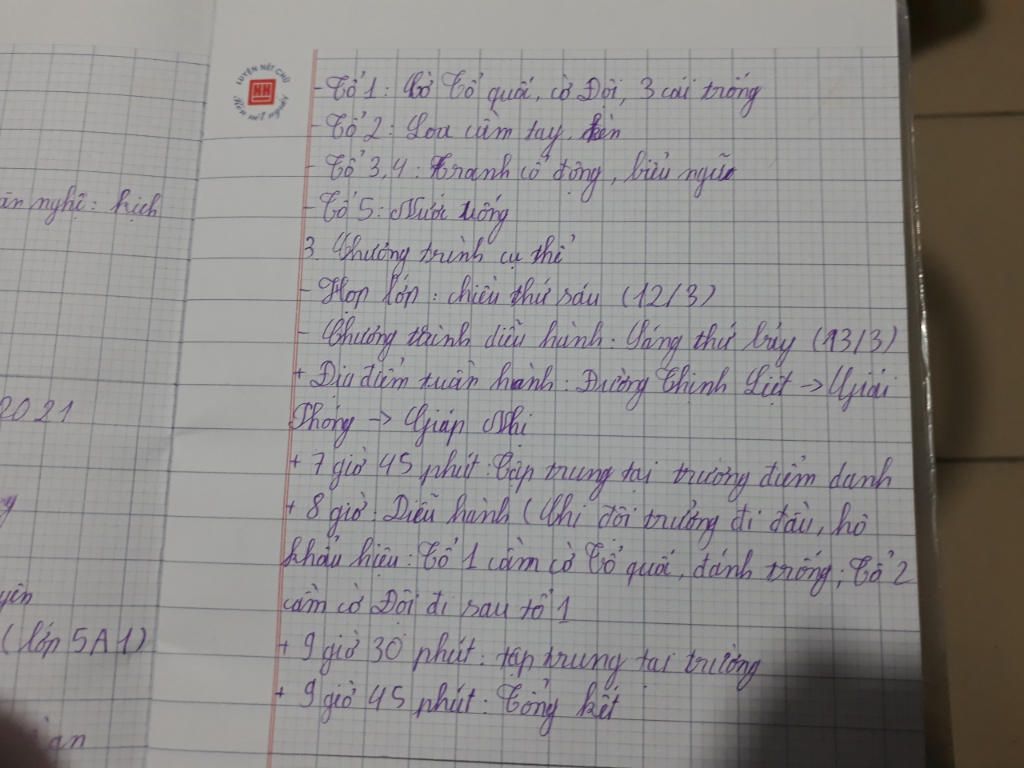 LUYỆN NÉT CHỮ
HH
Rèn nết người
- Tổ 1: Cờ Tổ quốc, cờ Đội, 3 cái trống
- Tổ 2: Loa cầm tay, kèn
- Tổ 3, 4: Tranh cổ động, biểu ngữ
- Tổ 5: Nước uống
3. Chương trình cụ thể
- Họp lớp: chiều thứ sáu (12/3)
- Chương trình diễu hành: Sáng thứ bảy (13/3)
+ Địa điểm tuần hành: Đường Thịnh Liệt → Giải
Phóng → Giáp Nhị
+ 7 giờ 45 phút: Tập trung tại trường điểm danh
+ 8 giờ: Diễu hành (Chi đội trưởng đi đầu, hô
khẩu hiệu: Tổ 1 cầm cờ Tổ quốc, đánh trống; Tổ 2
cầm cờ Đội đi sau tổ 1
+ 9 giờ 30 phút: tập trung tại trường
+ 9 giờ 45 phút: Tổng kết
ăn nghệ: kịch
2021
yên
(lớp 5A1)